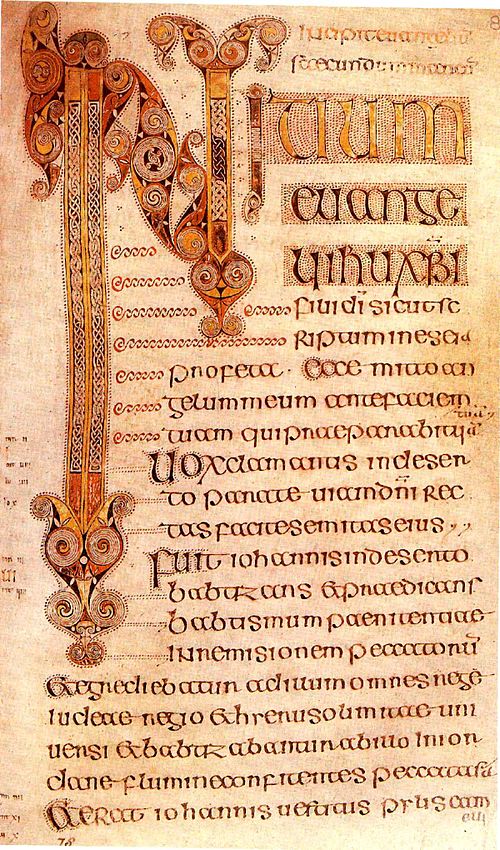 Incipit euangelium
secundum marcum
INITIUM
euange
lii ihu xpi
fili dī sicut sc
riptum in eseia
profeta · ecce mitto an
gelum meum ante faciem
tuam qui praeparabit uiā
tuā
uox clamantis in deser
to parate uiam dn̄i rec
tas facite semitas eius ,,
fuit iohannis in deserto
babtizans & praedicans
babtismum paenitentiae
in remisionem peccatorū
& egrediebatur ad illum omnes
iudeae regio & hierusolimitae uni
uersi & babtizabantur ab illo in ior
dane flumine confitentes peccata sua
& erat iohannis uestitus pylis cam
eli